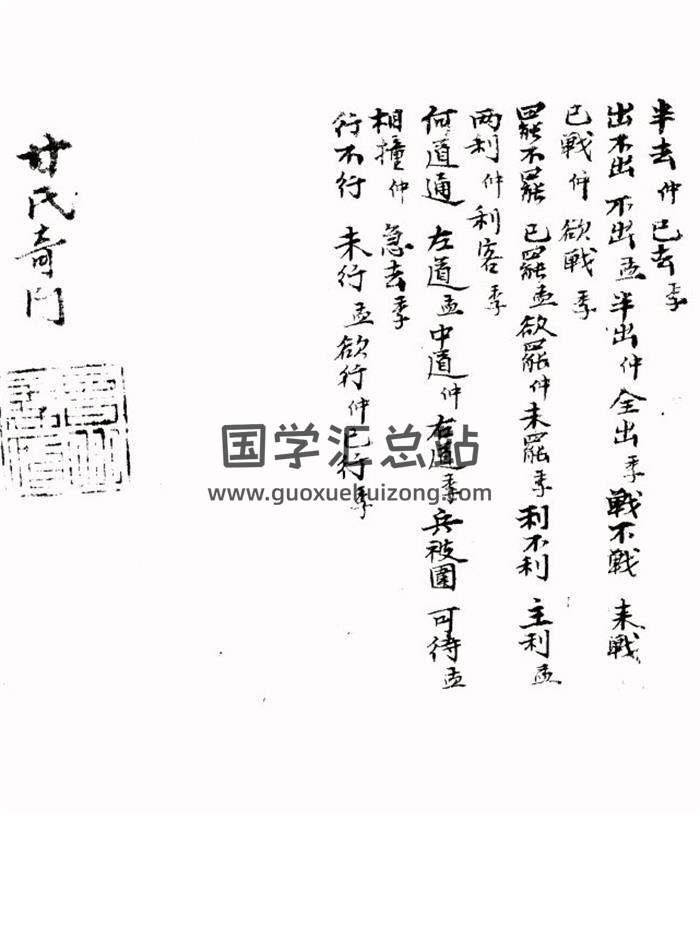 半去仲已去季
出不出 不出孟半出仲全出季 戰不戰 未戰
已戰仲欲戰季
罷不罷 已罷孟欲罷仲未罷季 利不利 主利孟
两利仲利客季
何道通 左道孟中道仲右道季 兵被圍 可待孟
相撞仲 急去季
行不行 未行孟欲行仲已行季
甘氏奇门
国学汇总站
www.guoxuehuizong.com